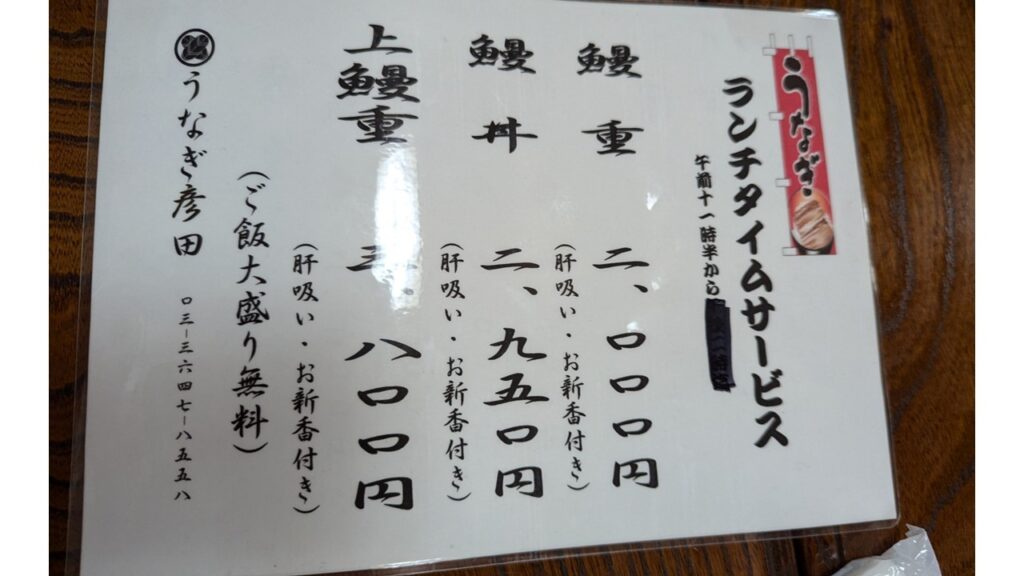 うなぎ
ランチタイムサービス
午前十一時半から
鰻重 二、〇〇〇円
(肝吸い・お新香付き)
鰻丼 二、九五〇円
(肝吸い・お新香付き)
上鰻重 三、八〇〇円
(肝吸い・お新香付き)
(ご飯大盛り無料)
うなぎ彦田 〇三-三六四七-八五五八